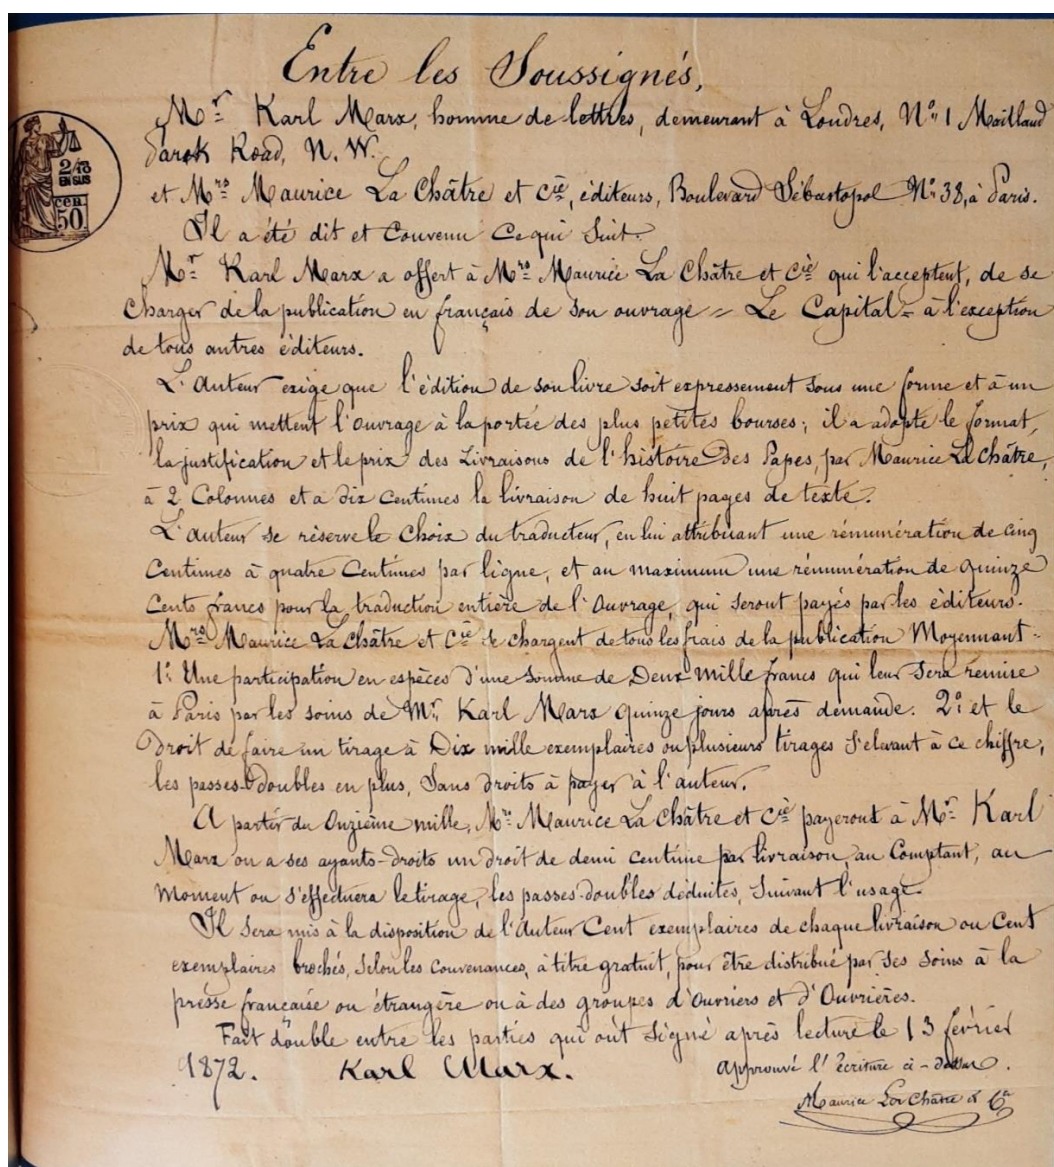 Entre les Soussignés,
Mr Karl Marx, homme de lettres, demeurant à Londres, No 1 Maitland
Parck Road, N. W.
2/10
EN SUS
CEN
50
et Mrs Maurice La Châtre et Cie, éditeurs, Boulevard Sébastopol No 38, à Paris.
Il a été dit et Convenu Ce qui Suit.
Mr Karl Marx a offert à Mrs Maurice La Châtre et Cie qui l'acceptent, de se
Charger de la publication en français de son ouvrage = Le Capital = à l'exception
de tous autres éditeurs.
L'auteur exige que l'édition de son livre soit expressement sous une forme et à un
prix qui mettent l'ouvrage à la portée des plus petites bourses; il a adopté le format,
la justification et le prix des Livraisons de l'histoire des Papes, par Maurice La Châtre,
à 2 Colonnes et a dix Centimes la livraison de huit pages de texte.
L'auteur se réserve le Choix du traducteur, en lui attribuant une rémunération de cinq
Centimes à quatre Centimes par ligne, et au maximum une rémunération de quinze
Cents francs pour la traduction entière de l'Ouvrage, qui Seront payés par les éditeurs.
Mrs Maurice La Châtre et Cie se chargent de tous les frais de la publication Moyennant =
1o Une participation en espèces d'une Somme de Deux mille francs qui leur Sera remise
à Paris par les soins de Mr Karl Marx quinze jours après demande. 2o et le
Droit de faire un tirage à Dix mille exemplaires ou plusieurs tirages S'elevant à ce chiffre,
les passes-doubles en plus, Sans droits à payer à l'auteur.
A partir du Onzième mille, Mrs Maurice La Châtre et Cie payeront à Mr Karl
Marx ou a ses ayants-droits un droit de demi centime par livraison, au Comptant, au
Moment ou S'effectuera le tirage, les passes-doubles déduites, Suivant l'usage.
Il Sera mis à la disposition de l'Auteur Cent exemplaires de chaque livraison ou Cent
exemplaires brochés, Selon les Convenances, à titre gratuit, pour être distribué par Ses Soins à la
presse française ou étrangère ou à des groupes d'Ouvriers et d'Ouvrières.
Fait double entre les parties qui ont Signé après lecture le 13 février
1872. Karl Marx. approuvé l'écriture ci-dessus.
Maurice La Châtre & Cie